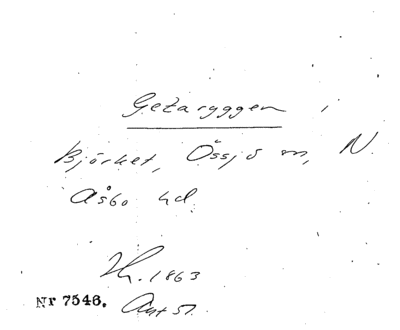 Getaryggen,
Björket, Össjö sn, N.
Åsbo hd.
1863
Nr 7546. Ant 51.